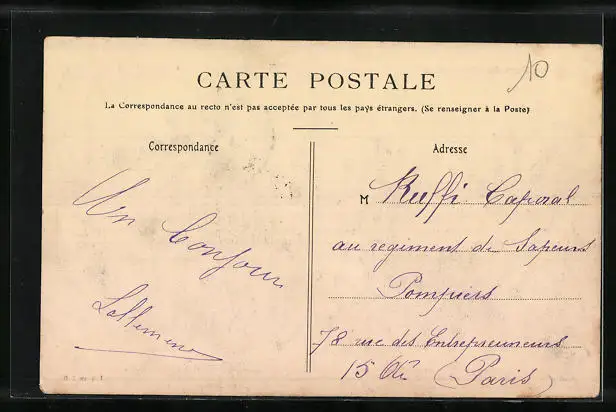 10
CARTE POSTALE
La Correspondance au recto n'est pas acceptée par tous les pays étrangers. (Se renseigner à la Poste)
Correspondance
Adresse
Un bonjour
M Ruffi Caporal
au regiment de Sapeurs
Pompiers
78 rue des Entrepreuneurs
15 Paris